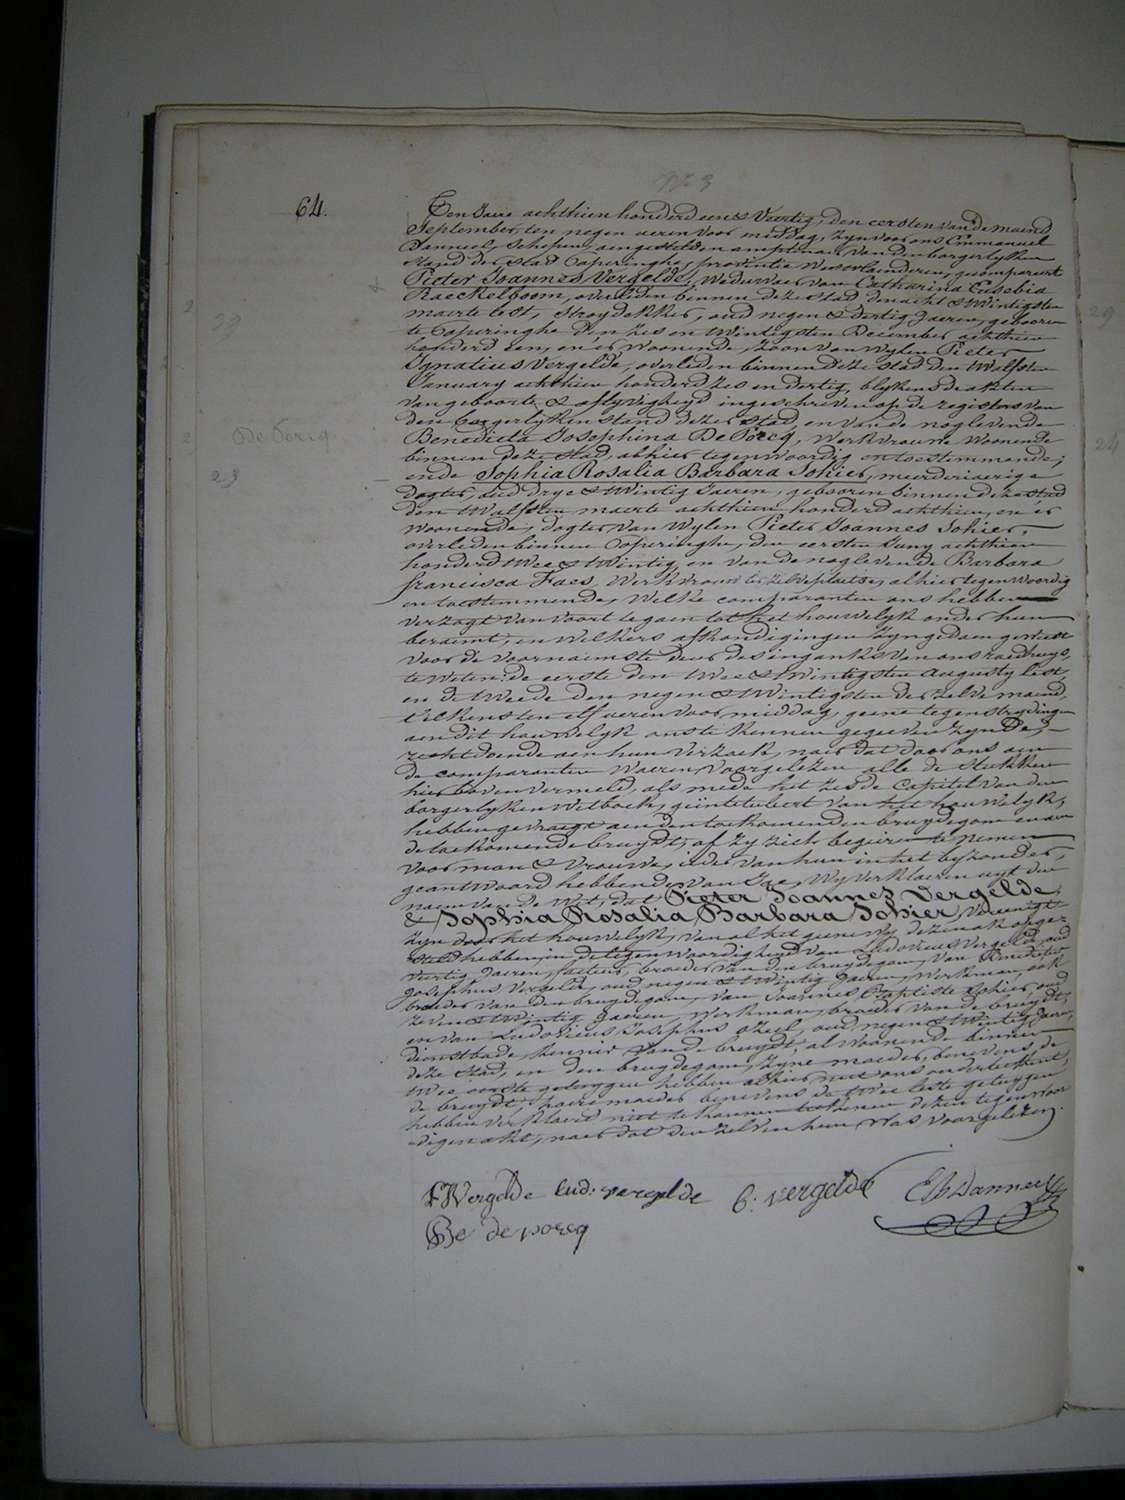 64.
Ten Jaere achthien honderd een & Veertig, den eersten van de maend
September, ten negen ueren voor middag, zyn voor ons Emmanuel
Danneel, Schepen, aengestelden amptenaer van den borgerlyken
stand der Stad Poperinghe, provintie Westvlaenderen, gecompareert
Pieter Joannes Vergelde, Weduwaer van Catharina Eusebia
Raeckelboom, overleden binnen deze Stad den acht & twintigsten
maerte lest, stroydekker, oud negen & dertig Jaeren, geboren
te Poperinghe den zes en twintigsten December achthien
honderd een, en er Woonende, zoon van Wylen Pieter
Ignatius Vergelde, overleden binnen deze stad den twelfsten
January achthien honderd zes en dertig, blykens de akten
van geboorte & aflyvigheyd ingeschreven op de registers van
den borgerlyken stand dezer Stad, en van de noglevende
Benedicta Josephina De Porcq, Werkvrouwe Woonende
binnen deze Stad, alhier tegenwoordig en toestemmende;
ende Sophia Rosalia Barbara Sohier, meerderjaerige
dogter, oud drye & twintig Jaeren, geboren binnen deze stad
den twalfsten maerte achthien honderd achthien, en er
Woonende, dogter van Wylen Pieter Joannes Sohier,
overleden binnen Poperinghe, den eersten Juny achthien
honderd twee & twintig, en van de noglevende Barbara
francisca Faes, Werkvrouw ter zelve plaetse, alhier tegenwoordig
en toestemmende, Welke comparanten ons hebben
verzogt van voort te gaen tot het houwelyk onder hun
beraemt, en welkers afkondigingen zyn gedaen geweest
voor de voornaemste deur des ingangs van ons raedhuys,
te weten: de eerste den twee & twintigsten Augusty lest,
en de tweede den negen & twintigsten der zelve maend,
telkens ten elf ueren voor middag, geene tegenstrydingen
aen dit houwelyk ons te kennen gegeven zynde,
recht doende aen hun verzoek, naer dat door ons aen
de comparanten Waeren voorgelezen alle de stukken
hier boven vermeld, als mede het zesde Capitel van den
borgerlyken Wetboek, geïntituleert van het houwelyk,
hebben gevraegt aen den toekomenden bruydegom en aen
de toekomende bruydt, of zy zich begeiren te nemen
voor man & vrouwe, ieder van hun in het byzonder,
geantwoord hebbende van Jae, Wy verklaeren uyt den
naem van de Wet, dat Pieter Joannes Vergelde
& Sophia Rosalia Barbara Sohier, vereenigt
zyn door het houwelyk, van al het geene wy dezen akt opge-
steld hebben, in de tegenwoordigheyd van Ludovicus Vergelde, oud
veertig Jaeren, facteur, broeder van den bruydegom, van Benedictus
Josephus Vergelde, oud negen & twintig Jaeren, Werkman, ook
broeder van den bruydegom, van Joannes Baptiste Sohier, oud
zeven & twintig Jaeren, Werkman, broeder van de bruydt,
en van Ludovicus Josephus oud negen & twintig Jaeren,
dienstbode, kennis van de bruydt, al woonende binnen
deze stad, en den bruydegom, zyne moeder, benevens de
twee eerste getuygen hebben alhier met ons onderteekent,
de bruydt, haere moeder benevens de twee leste getuygen
hebben verklaerd niet te konnen teekenen dezen tegenwoor-
digen akt, naer dat den zelven hun was voorgelezen.
PJVergelde Lud: vergelde B: vergelde EDanneel
Be de porcq
De Porcq
39
23
29
24